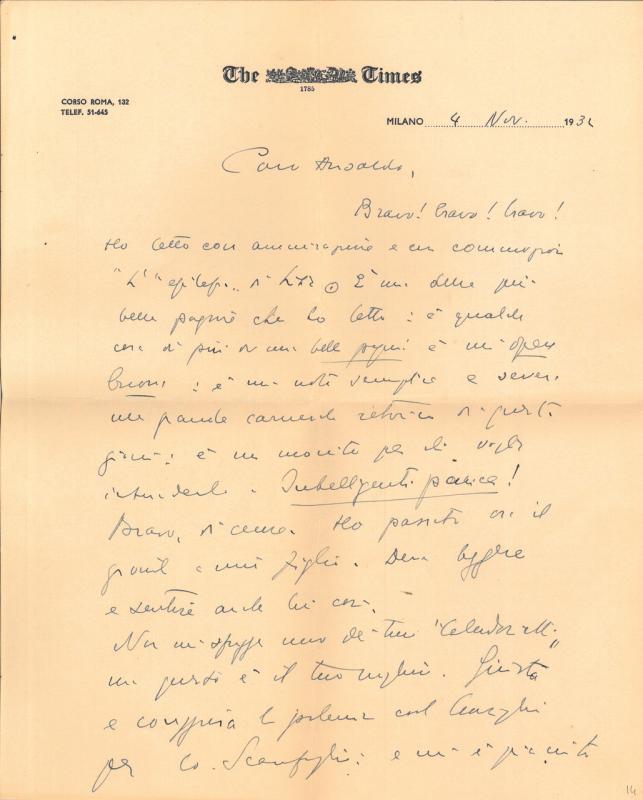 The Times
1785
CORSO ROMA, 132
TELEF. 51-645
MILANO 4 Nov. 1932
Caro Ansaldo,
Bravo! bravo! bravo!
Ho letto con ammirazione e con commozione
È una delle più
belle pagine che ho letto: è qualche
cosa di più di una bella pagina: è un'opera
buona: è una nota semplice e severa
una grande retorica di questi
giorni: è un monito per chi voglia
intenderlo. Intelligenti pauca!
Bravo, di cuore. Ho passato ora il
a mio figlio. Deve leggere
e sentire anche lui così.
Non mi sfugge uno de' tuoi "Calendarietti"
ma questo è il tuo meglio. Giusta
e la polemica col
per lo e mi è piaciuta
14